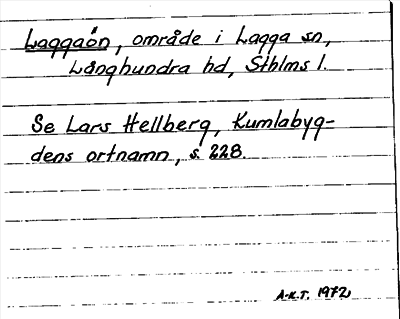 Laggaön, område i Lagga sn,
Långhundra hd, Sthlms l.
Se Lars Hellberg, Kumlabyg-
dens ortnamn, s. 228.
A-K.T. 1972